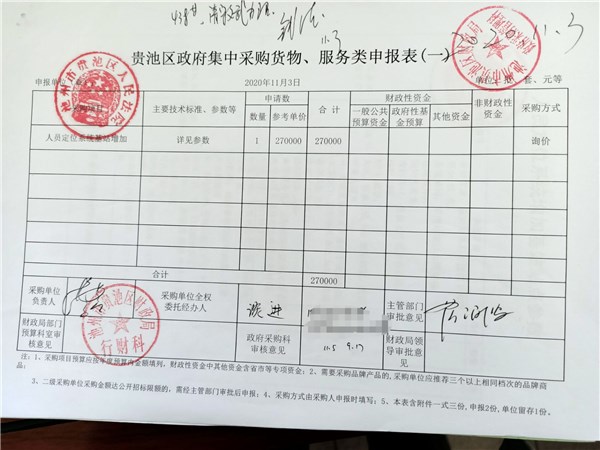 11.3
2020.11.3
贵池区政府集中采购货物、服务类申报表(一)
申报单位 2020年11月3日 单位：批、套、元等
池州市贵池区人民法院
主要技术标准、参数等 申请数 合计 财政性资金 非财政性资金 采购方式
数量 参考单价 一般公共预算资金 政府性基金预算 其他资金
人员定位系统基站增加 详见参数 1 270000 270000 询价
合计 270000
采购单位负责人 采购单位全权委托经办人 主管部门审批意见
池州市贵池区财政局
行财科
财政局部门预算科室审核意见 政府采购科审核意见 11.5 9.17 财政局领导审批意见
注：1、采购项目预算应按年度预算内金额填列，财政性资金中其他资金含省市等专项资金；2、需要采购品牌产品的，采购单位应推荐三个以上相同档次的品牌商品；
3、二级采购单位采购金额达公开招标限额的，需经主管部门审批后申报；4、采购方式由采购人申报时填写；5、本表含附件一式三份，申报2份，单位留存1份。